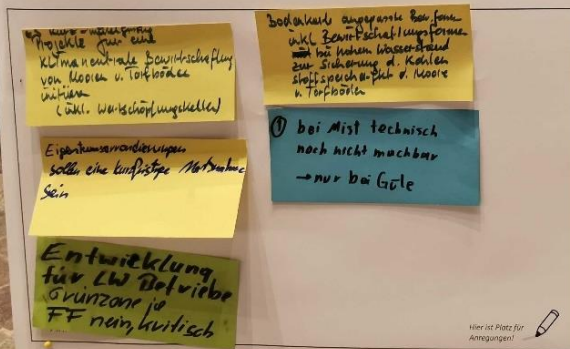 Projekte für eine
klimaneutrale Bewirtschaftung
von Mooren u. Torfböden
initiieren
(inkl. Wertschöpfungsketten)
Eigentumsarrondierungen
sollen eine kurzfristige Massnahme
sein
Entwicklung
für LW Betriebe
Grünzone ja
FF nein, kritisch
angepasste Bew.form
inkl. Bewirtschaftungsformen
bei hohem Wasserstand
zur Sicherung d. Kohlen
stoffspeicherfkt d. Moore
u. Torfböden
① bei Mist technisch
noch nicht machbar
→ nur bei Gülle
Hier ist Platz für
Anregungen!